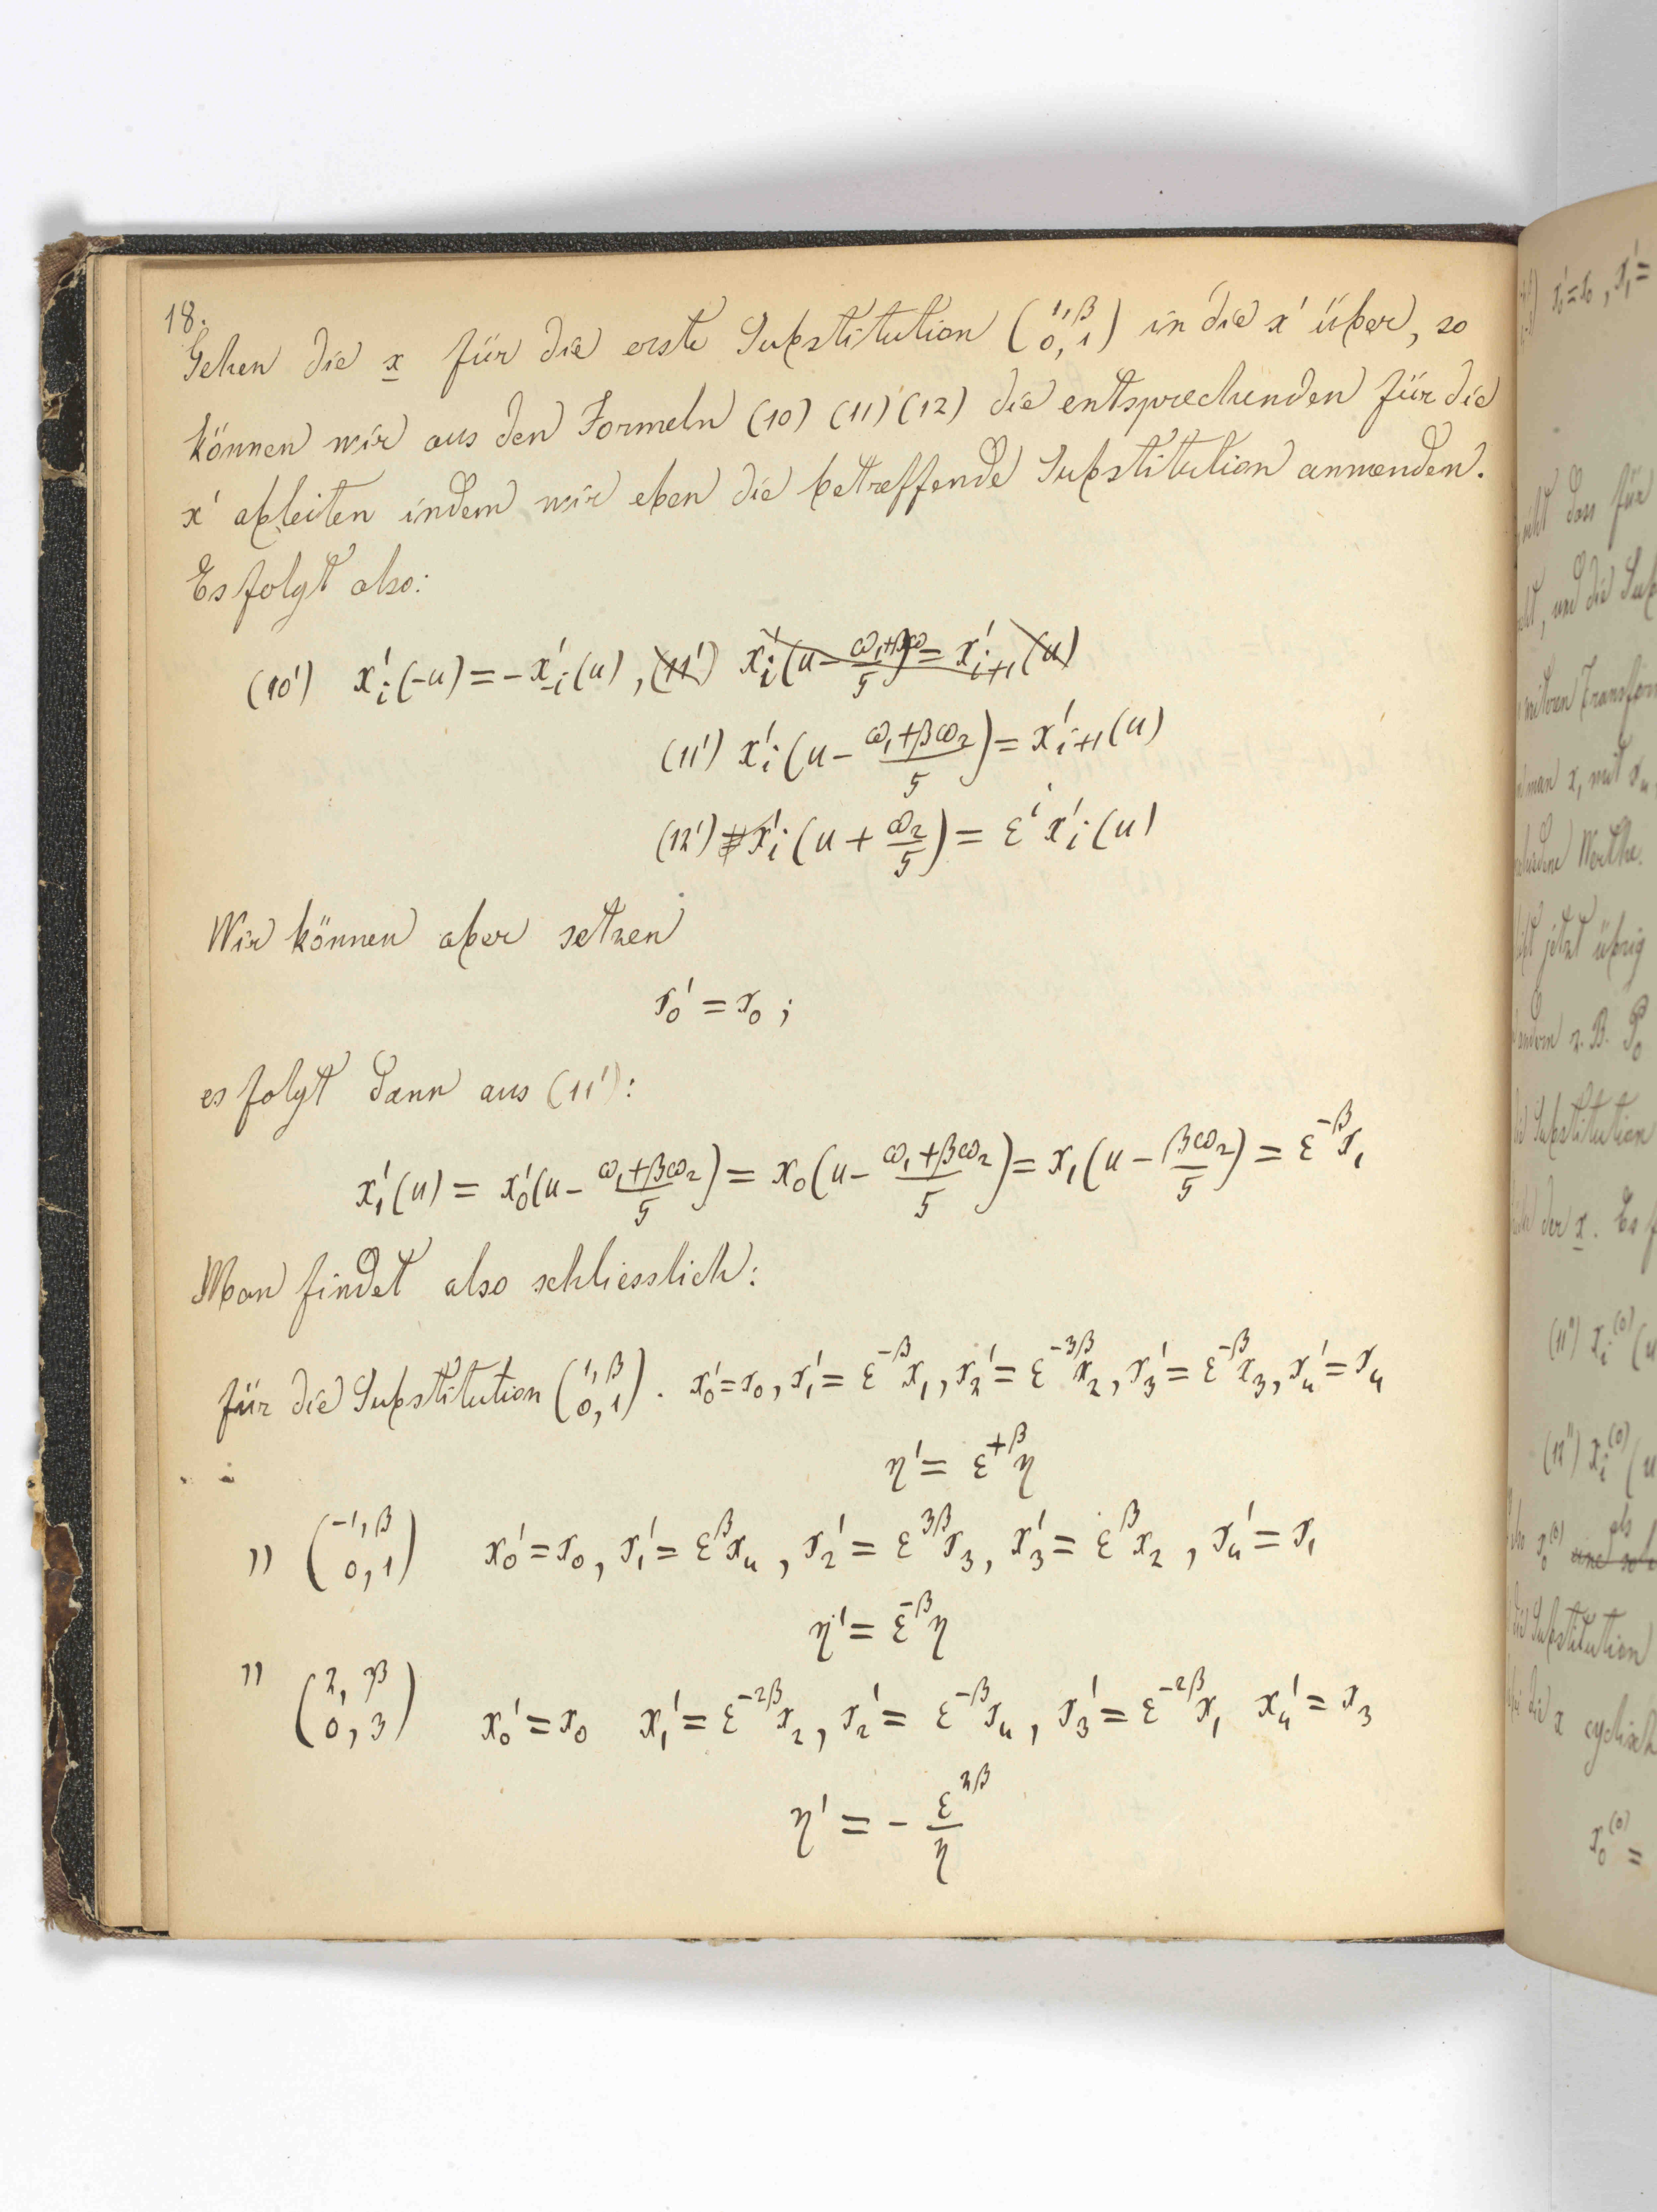 18.
Gehen die x für die erste Substitution (1, β / 0, 1) in die x' über, so
können wir aus den Formeln (10) (11) (12) die entsprechenden für die
x' ableiten indem wir eben die betreffende Substitution anwenden.
Es folgt also:
(10') x'_i(-u) = - x'_{-i}(u), (11') x'_i(u - (ω₁+βω)/5) = x'_{i+1}(u)
(11') x'_i(u - (ω₁+βω₂)/5) = x'_{i+1}(u)
(12') x'_i(u + ω₂/5) = ε^i x'_i(u)
Wir können aber setzen
x₀' = x₀ ;
es folgt dann aus (11'):
x₁'(u) = x₀'(u - (ω₁+βω₂)/5) = x₀(u - (ω₁+βω₂)/5) = x₁(u - βω₂/5) = ε^{-β} x₁
Man findet also schliesslich:
für die Substitution (1, β / 0, 1). x₀' = x₀, x₁' = ε^{-β} x₁, x₂' = ε^{-3β} x₂, x₃' = ε^{-β} x₃, x₄' = x₄
η' = ε^{+β} η
" (-1, β / 0, 1) x₀' = x₀, x₁' = ε^{β} x₄, x₂' = ε^{3β} x₃, x₃' = ε^{β} x₂, x₄' = x₁
η' = ε^{-β} η
" (2, β / 0, 3) x₀' = x₀ x₁' = ε^{-2β} x₂, x₂' = ε^{-β} x₄, x₃' = ε^{-2β} x₁ x₄' = x₃
η' = - ε^{2β} / η
x₀' = x₀, x₁' =
dass für
, und die Sub
weiteren Transfor
man x, mit x₄
Werthe.
jetzt übrig
andern z. B. P₀
Substitution
der x. Es f
(11'') x_i^{(0)} (u
(12'') x_i^{(0)} (u
als
x₀^{(0)}
die Substitution
die x cyclisch
x₀^{(0)} =